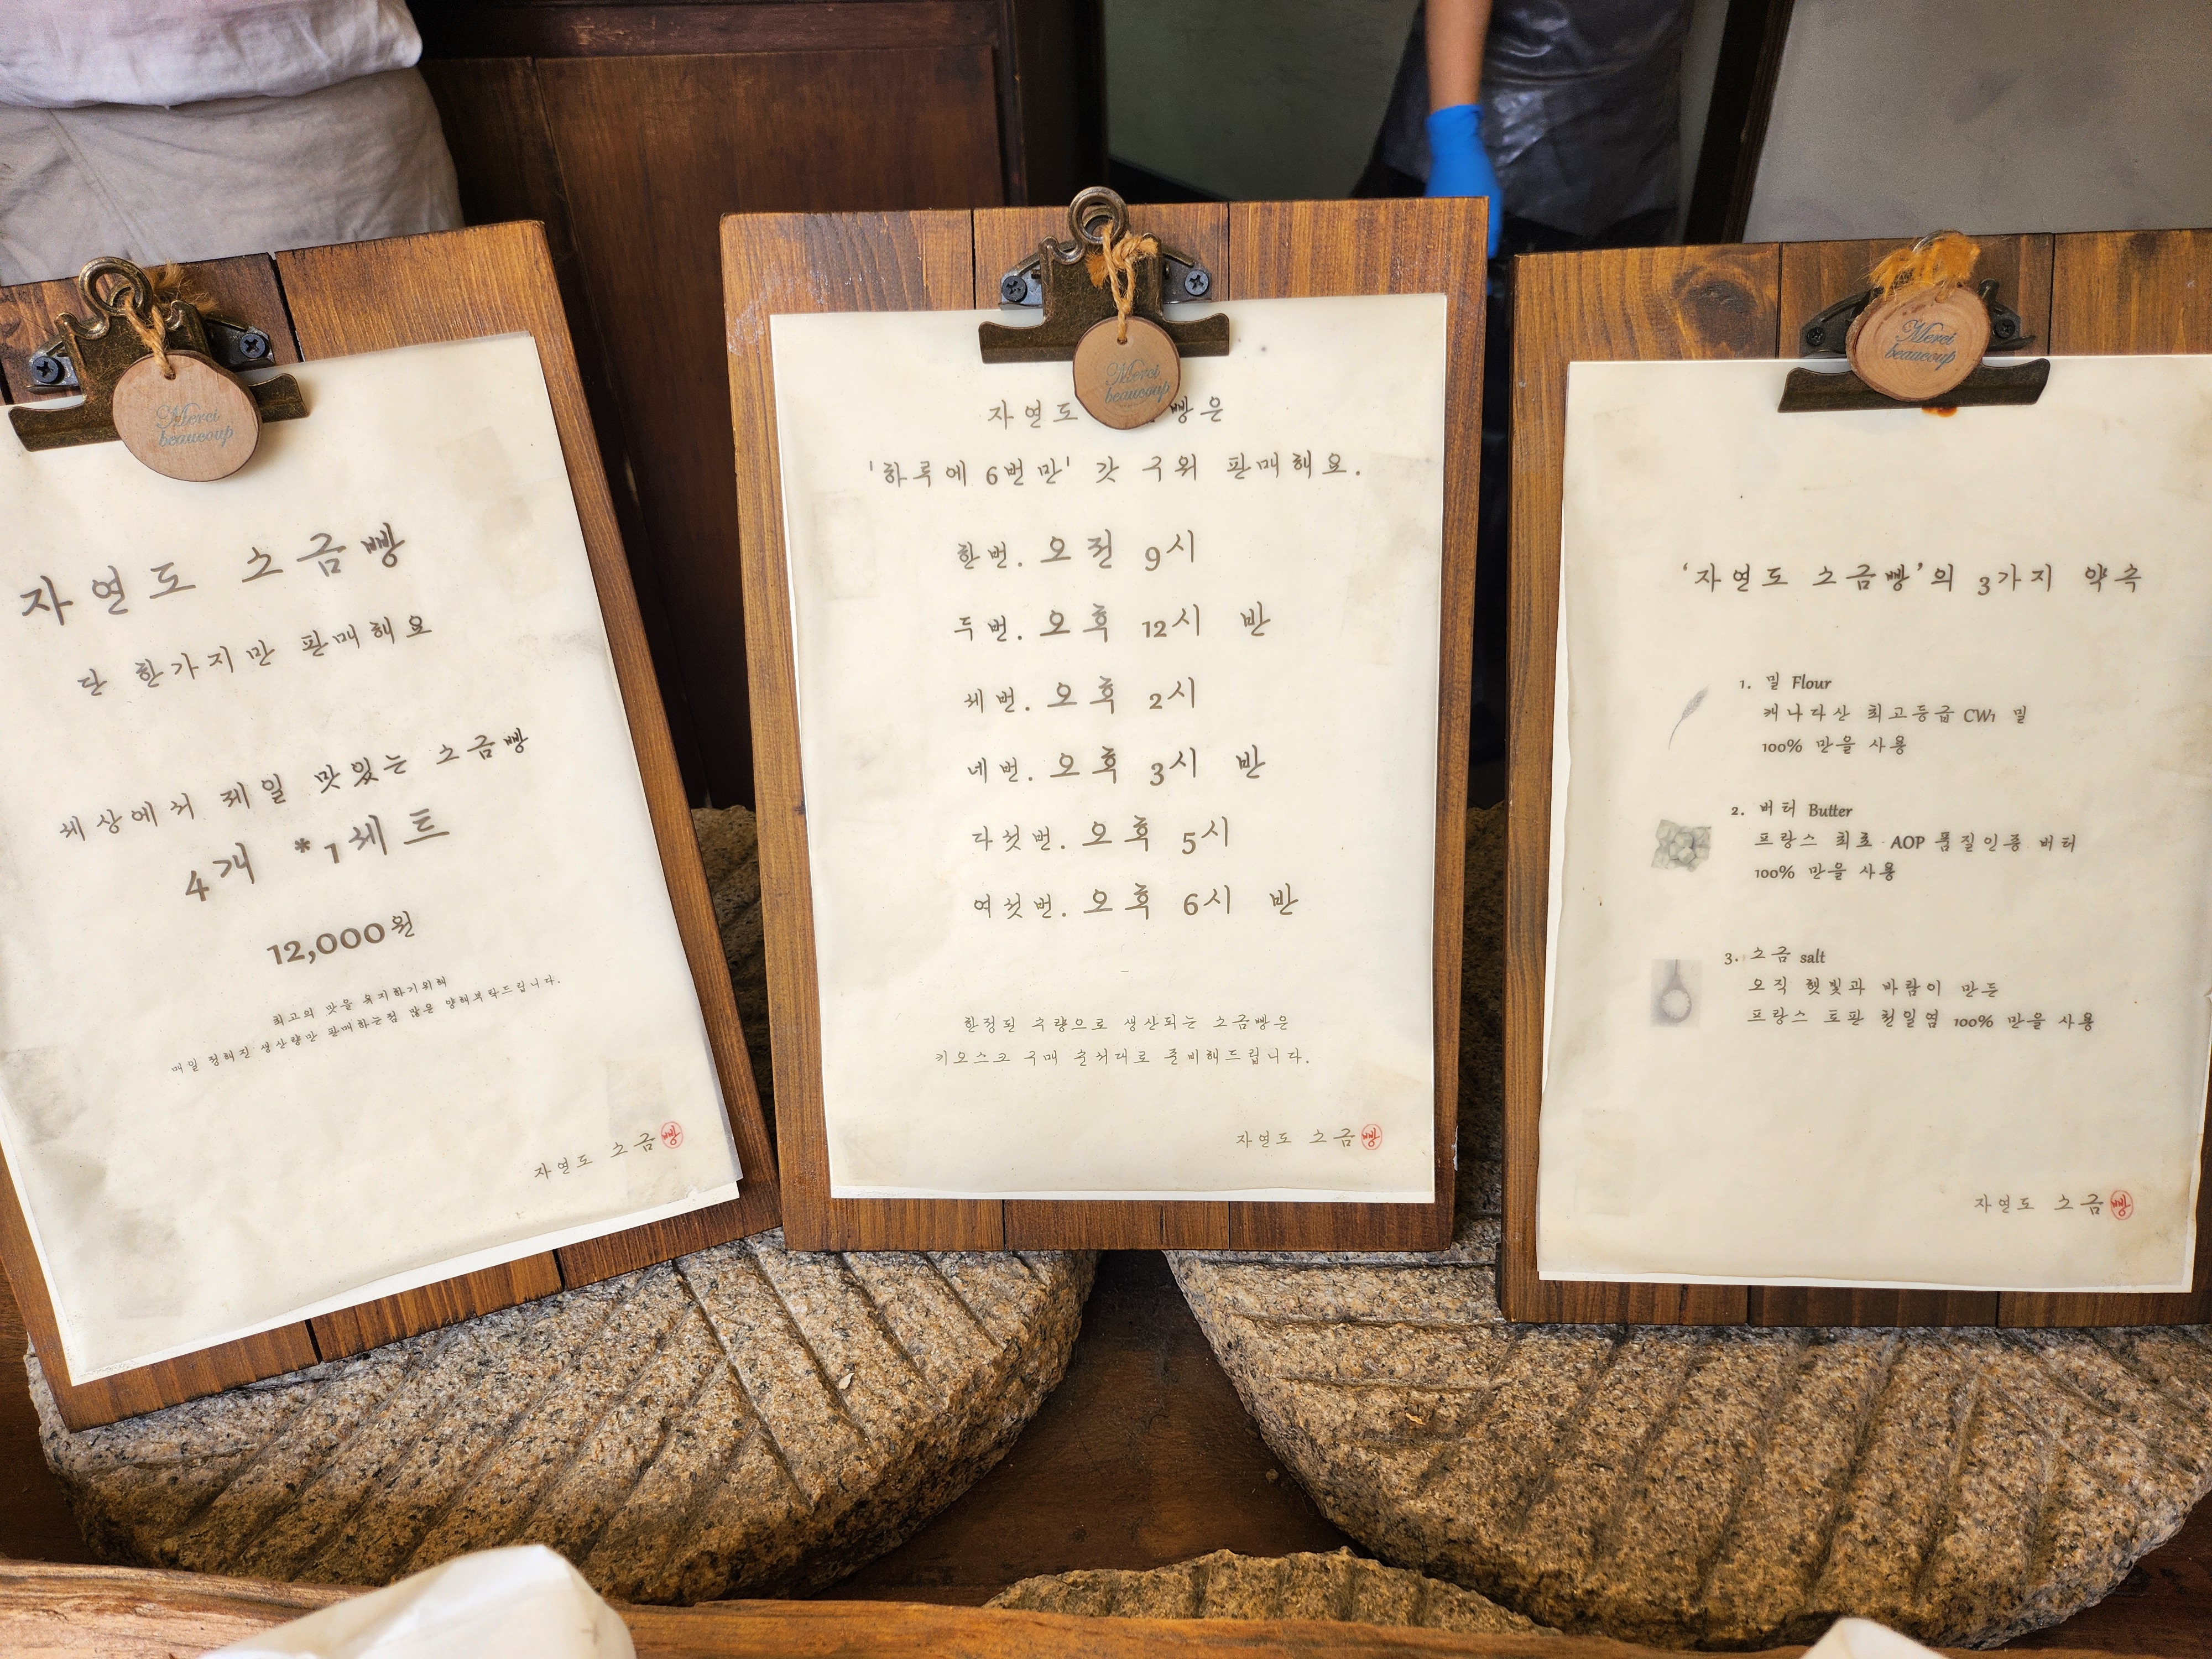 Merci
beaucoup
자연도 소금빵
단 한가지만 판매해요
세상에서 제일 맛있는 소금빵
4개 *1세트
12,000원
최고의 맛을 유지하기위해
매일 정해진 생산량만 판매하는점 많은 양해부탁드립니다.
자연도 소금빵
Merci
beaucoup
자연도 빵은
'하루에 6번만' 갓 구워 판매해요.
한번. 오전 9시
두번. 오후 12시 반
세번. 오후 2시
네번. 오후 3시 반
다섯번. 오후 5시
여섯번. 오후 6시 반
한정된 수량으로 생산되는 소금빵은
키오스크 구매 순서대로 준비해드립니다.
자연도 소금빵
Merci
beaucoup
‘자연도 소금빵’의 3가지 약속
1. 밀 Flour
캐나다산 최고등급 CW1 밀
100% 만을 사용
2. 버터 Butter
프랑스 최초 AOP 품질인증 버터
100% 만을 사용
3. 소금 salt
오직 햇빛과 바람이 만든
프랑스 토판 천일염 100% 만을 사용
자연도 소금빵